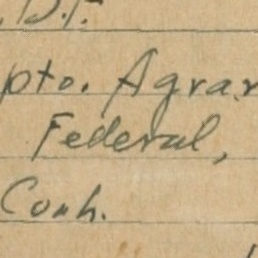 D.F.
pto. Agrar
Federal,
Conh.